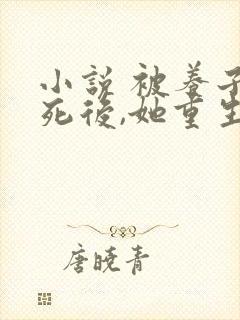 小說 被養子
死後,她重生
唐曉青